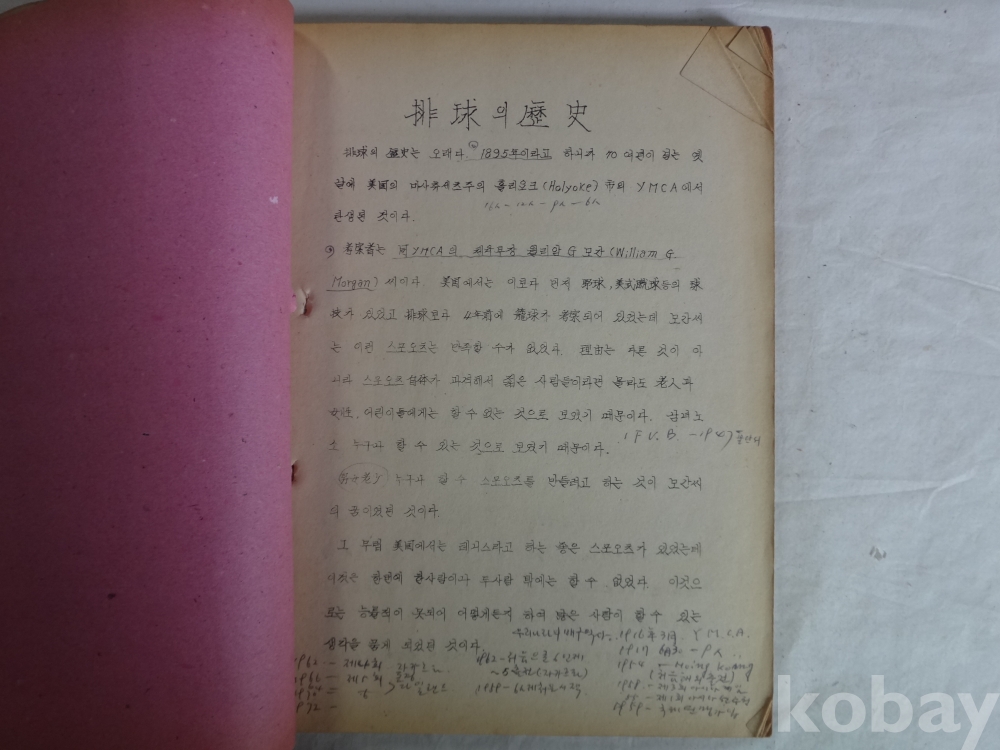 排球의 歷史
排球의 歷史는 오래다. 1895年이라고 하니까 70 여년이 넘는 옛
날에 美國의 마사츄세츠주의 홀리오크(Holyoke) 市의 YMCA에서
탄생된 것이다.
考案者는 同 YMCA의 체육부장 윌리암 G 모간 (William G
Morgan) 씨이다. 美國에서는 이보다 먼저 野球, 美式蹴球等의 球
技가 있었고 排球보다 4年前에 籠球가 考案되어 있었는데 모간씨
는 이런 스포오츠는 만족할 수가 없었다. 理由는 다른 것이 아
니라 스포오츠 自体가 과격해서 젊은 사람들이라면 몰라도 老人과
女性, 어린이들에게는 할 수 없는 것으로 보였기 때문이다. 남녀노
소 누구나 할 수 있는 것으로 보였기 때문이다.
I F V. B. - 1947
누구나 할 수 스포오츠를 만들려고 하는 것이 모간씨
의 꿈이었던 것이다.
그 무렵 美國에서는 테니스라고 하는 좋은 스포오츠가 있었는데
이것은 한번에 한사람이나 두사람 밖에는 할 수 없었다. 이것으
로는 능률적이 못되어 어떻게든지 하여 많은 사람이 할 수 있는
생각을 품게 되었던 것이다.
1916年 3月 Y M C A.
1917
1962 - 제4회
1962 - 처음으로 6인제
1954
1966 - 제5회
1958 - 제3회
1972 -
1959 -
kobay